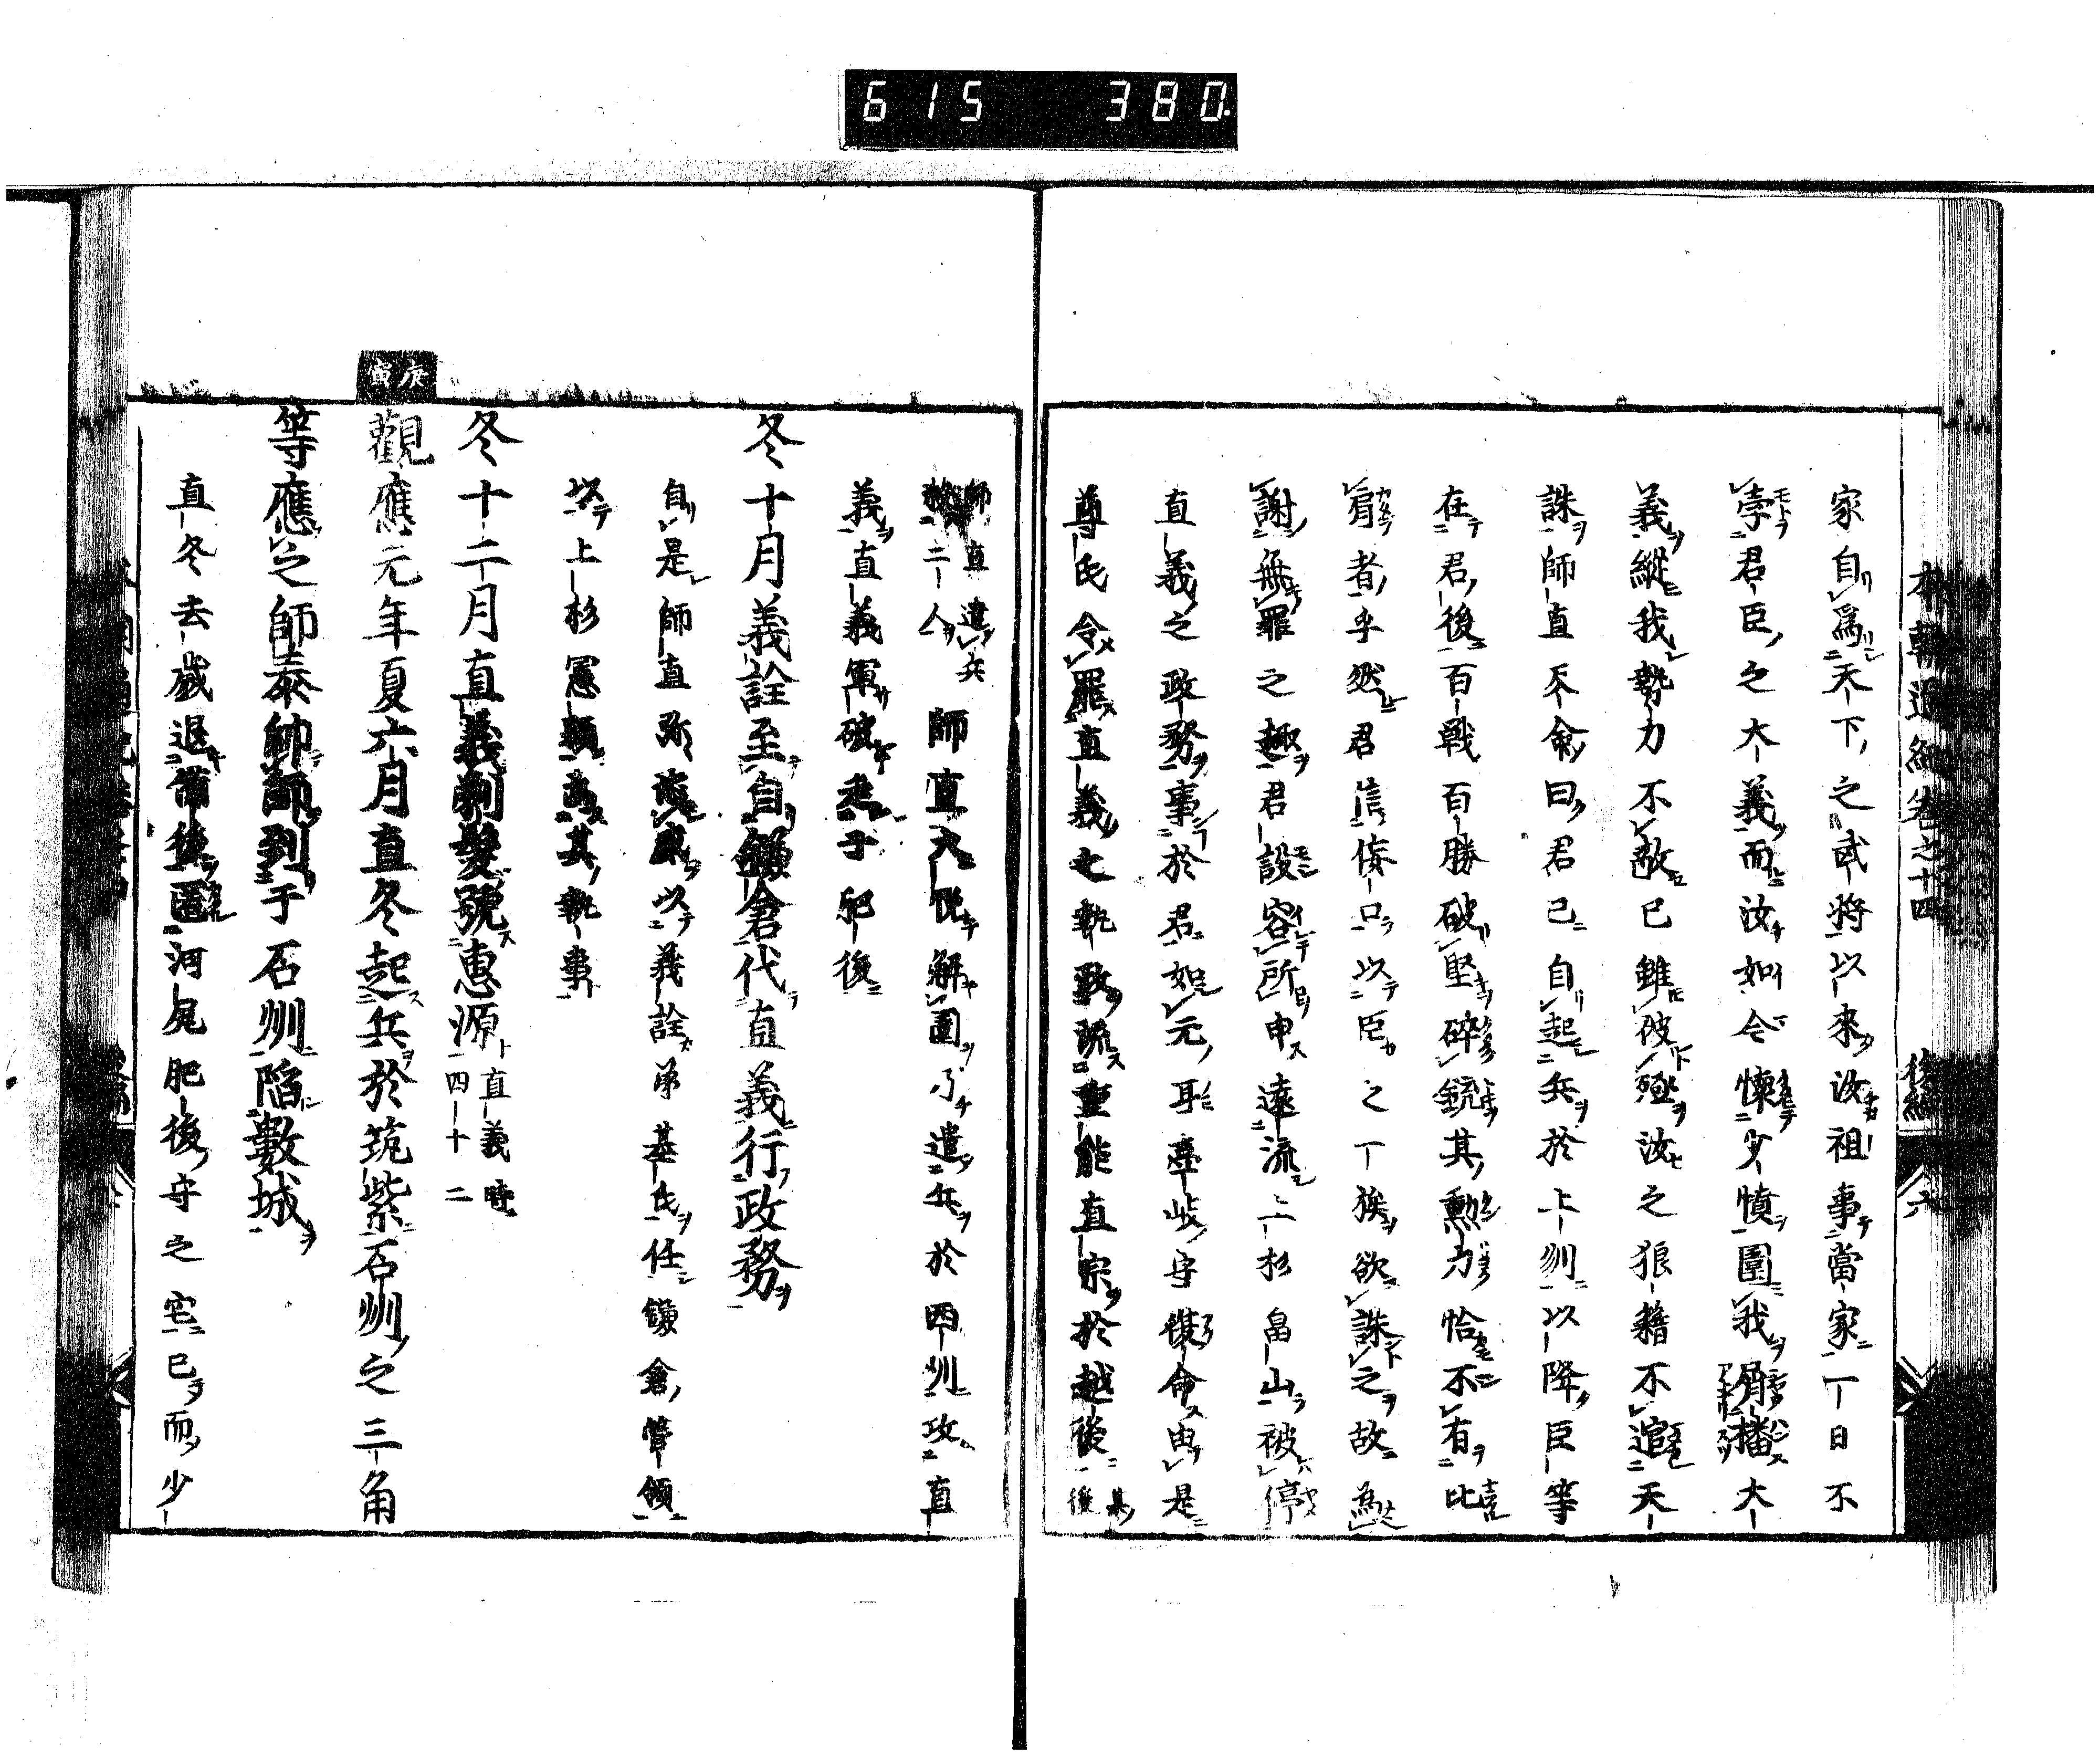 615 380
本朝通紀卷之十四 後編 六
家自爲天下之武將以來汝祖事當家一日不
悖君臣之大義而汝如今懷少憤圍我屑播大
義縱我勢力不敵已雖被殛汝之狼藉不追天
誅師直不兪曰君已自起兵於上州以降臣等
在君後百戰百勝破堅碎銳其勳力恰不有比
肩者乎然君信侫口以臣之一族欲誅之故為
謝無罪之趣君設容所申遠流二杉畠山被停
直義之政務事於君如元耳臺峻守復命由是
尊氏令罷直義之執政流重能直宗於越後其後
師直遣兵殺二人師直大悅解圍乃遣兵於西州攻直
義直義軍破走于肥後
冬十月義詮至自鎌倉代直義行政務
自是師直弥恣威以義詮弟基氏任鎌倉管領
以上杉憲顯為其執事
冬十二月直義剃髮號惠源直義時四十二
庚寅
觀應元年夏六月直冬起兵於筑紫石州之三角
等應之師泰帥師到于石州陷數城
直冬去歲退備後匿河尻肥後守之宅已而少